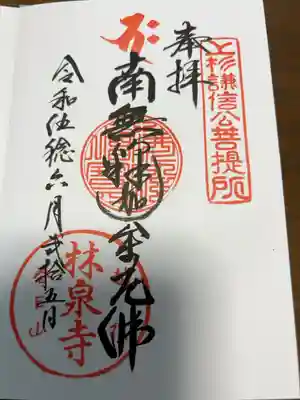 奉拝
上杉謙信公菩提所
南無釈迦牟尼佛
林泉寺
令和伍稔六月弐拾五日